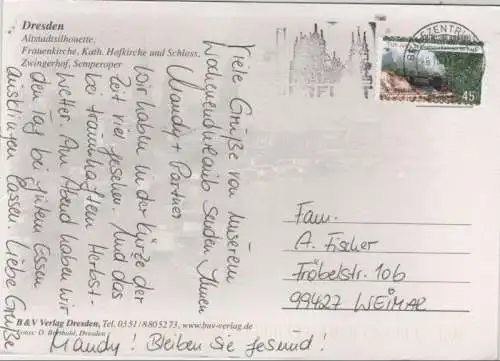 Dresden
Altstadtsilhouette,
Frauenkirche, Kath. Hofkirche und Schloss,
Zwingerhof, Semperoper
Viele Grüße von unserem
Wochenendurlaub senden Ihnen
Mandy + Partner
Wir haben in der Kürze der
Zeit viel gesehen. Und das
bei traumhaften Herbst-
wetter. Am Abend haben wir
den Tag bei gutem Essen
ausklingen lassen. Liebe Grüße
Mandy! Bleiben Sie gesund!
BRIEFZENTRUM
45
Fam.
A. Fischer
Fröbelstr. 10b
99427 WEIMAR
B & V Verlag Dresden, Tel. 0351/8805273, www.buv-verlag.de
Fotos: D. Berthold, Dresden